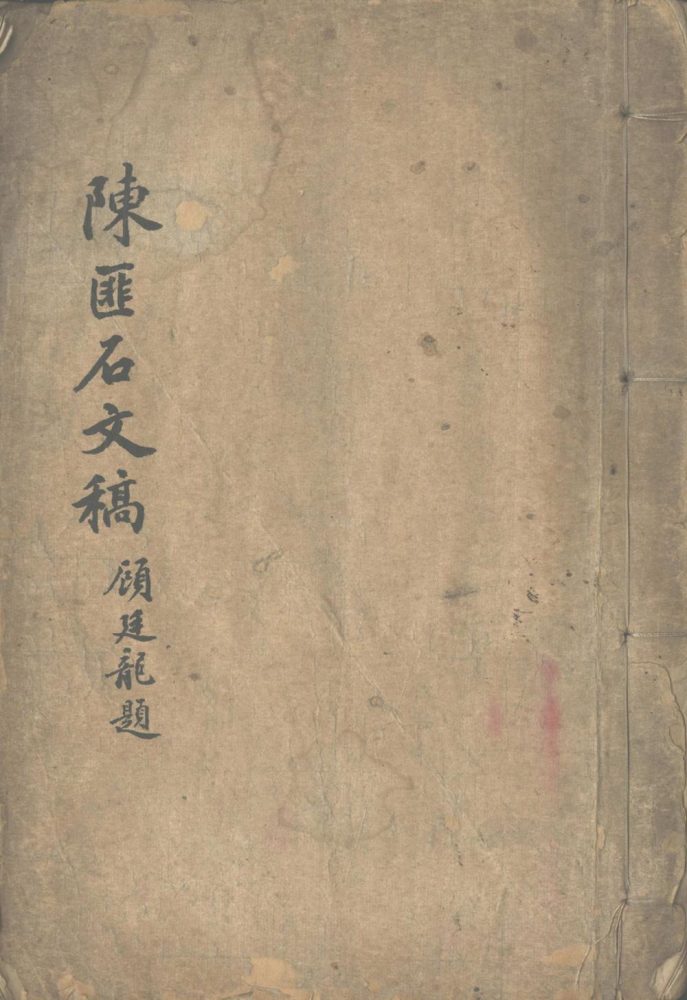 陳匪石文稿
顧廷龍題